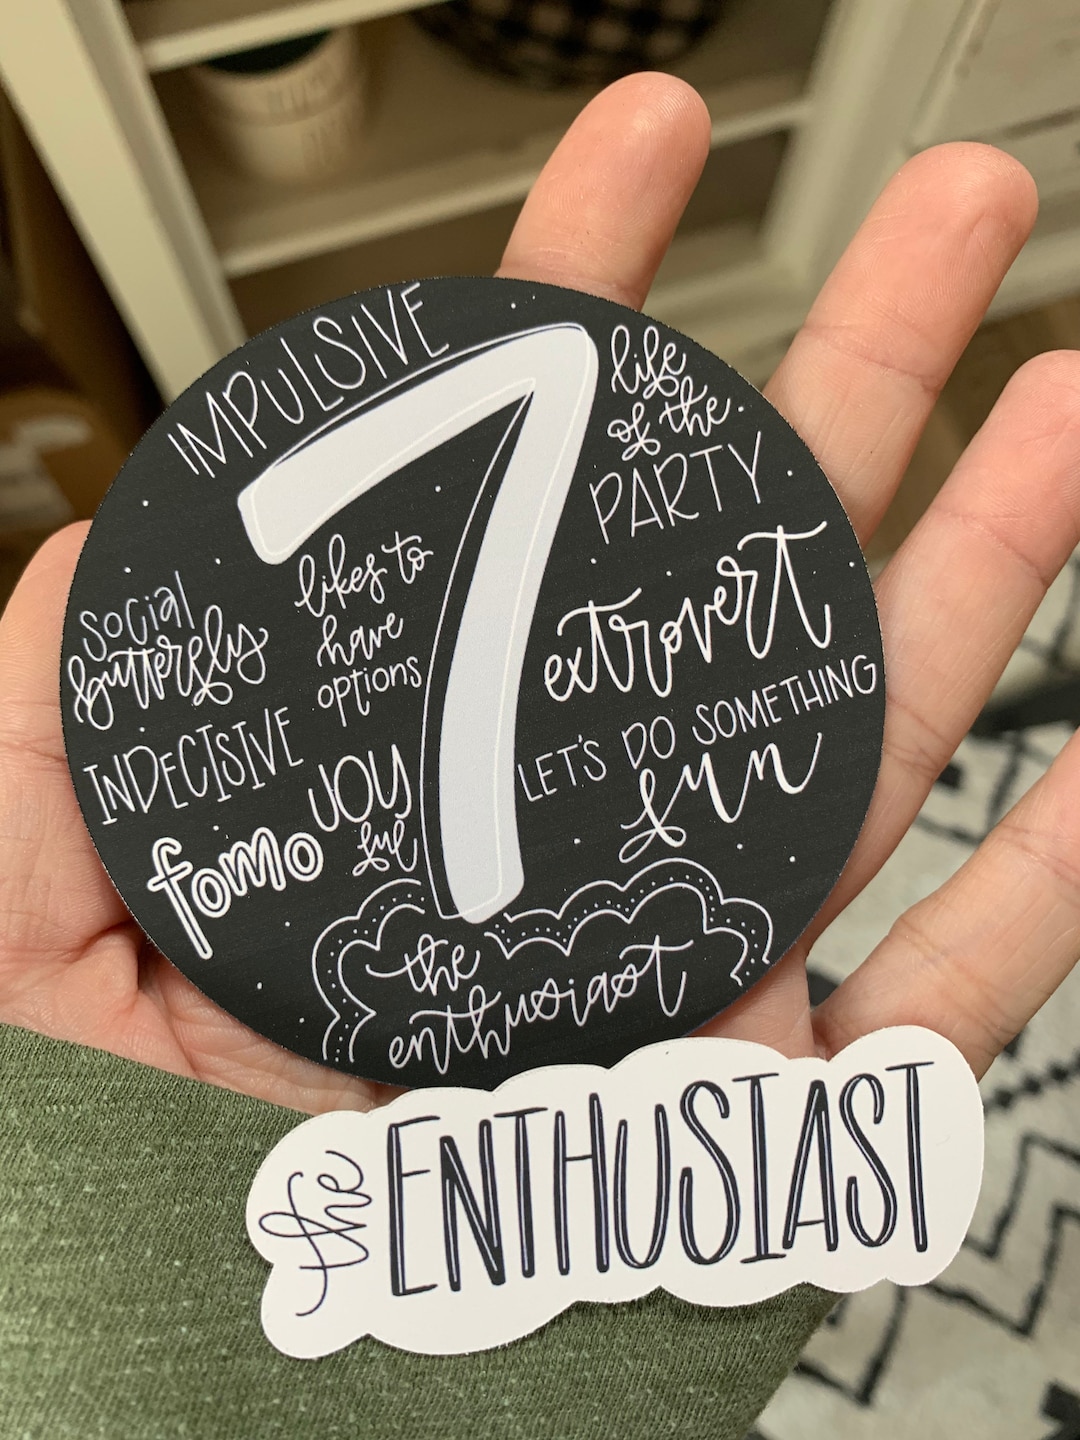 IMPULSIVE
7
life
of the
PARTY
likes to
have
options
social
butterfly
extrovert
INDECISIVE
LET'S DO SOMETHING
fun
JOY
ful
fomo
the
enthusiast
the ENTHUSIAST